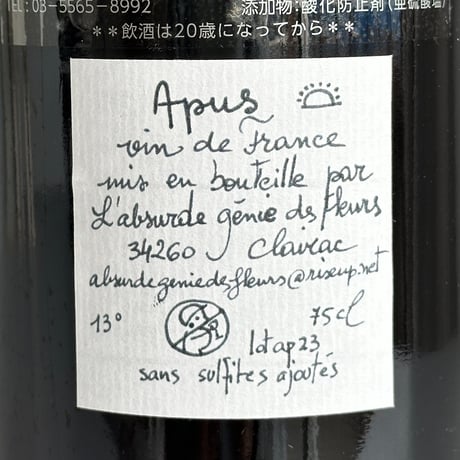 TEL:03-5565-8992
添加物:酸化防止剤(亜硫酸塩)
**飲酒は20歳になってから**
Apus
vin de France
mis en bouteille par
L'absurde génie des fleurs
34260 Clairac
absurdegeniedesfleurs@riseup.net
13° 75cl
lot ap23
sans sulfites ajoutés